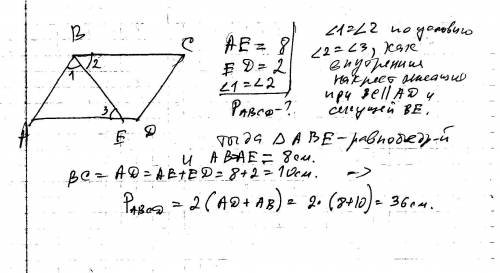 B
C
1
2
3
A
E
D
AE = 8
ED = 2
∠1 = ∠2
P_ABCD - ?
∠1 = ∠2 по условию
∠2 = ∠3, как
внутренние
накрест лежащие
при BC || AD и
секущей BE.
тогда △ABE - равнобедр-й
и AB=AE = 8см.
BC = AD = AE + ED = 8 + 2 = 10см. →
P_ABCD = 2(AD + AB) = 2·(8+10) = 36см.